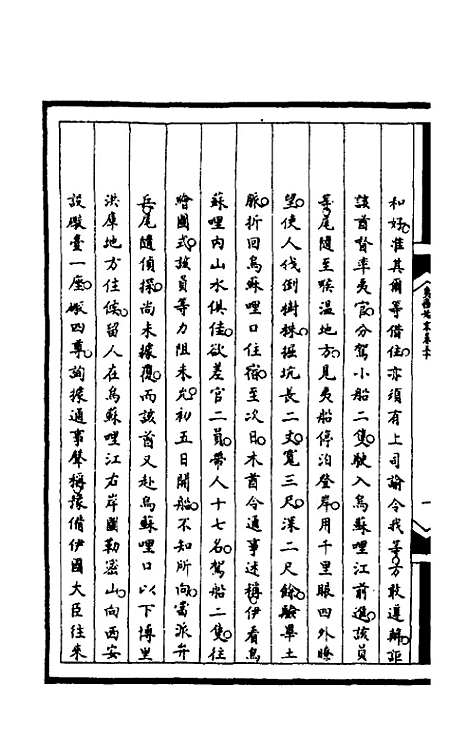 和好准其爾等借住亦須有上司諭令我等方敢遵辦詎
該酋督率夷官分駕小船二隻駛入烏蘇哩江前進該員
等尾隨至喉溫地方見夷船停泊登岸用千里眼四外瞭
望使人伐倒樹株掘坑長二丈寬三尺深二尺餘驗畢土
脈折回烏蘇哩口住宿至次日木酋令通事述稱伊看烏
蘇哩內山水俱佳欲差官二員帶人十七名駕船二隻往
繪圖式該員等力阻未允初五日開船不知所向當派弁
兵尾隨偵探尚未據覆而該酋又赴烏蘇哩口以下博里
洪庫地方住候留人在烏蘇哩江右岸圖勒密山向西安
設礮臺一座礮四尊詢據通事聲稱豫備伊國大臣往來